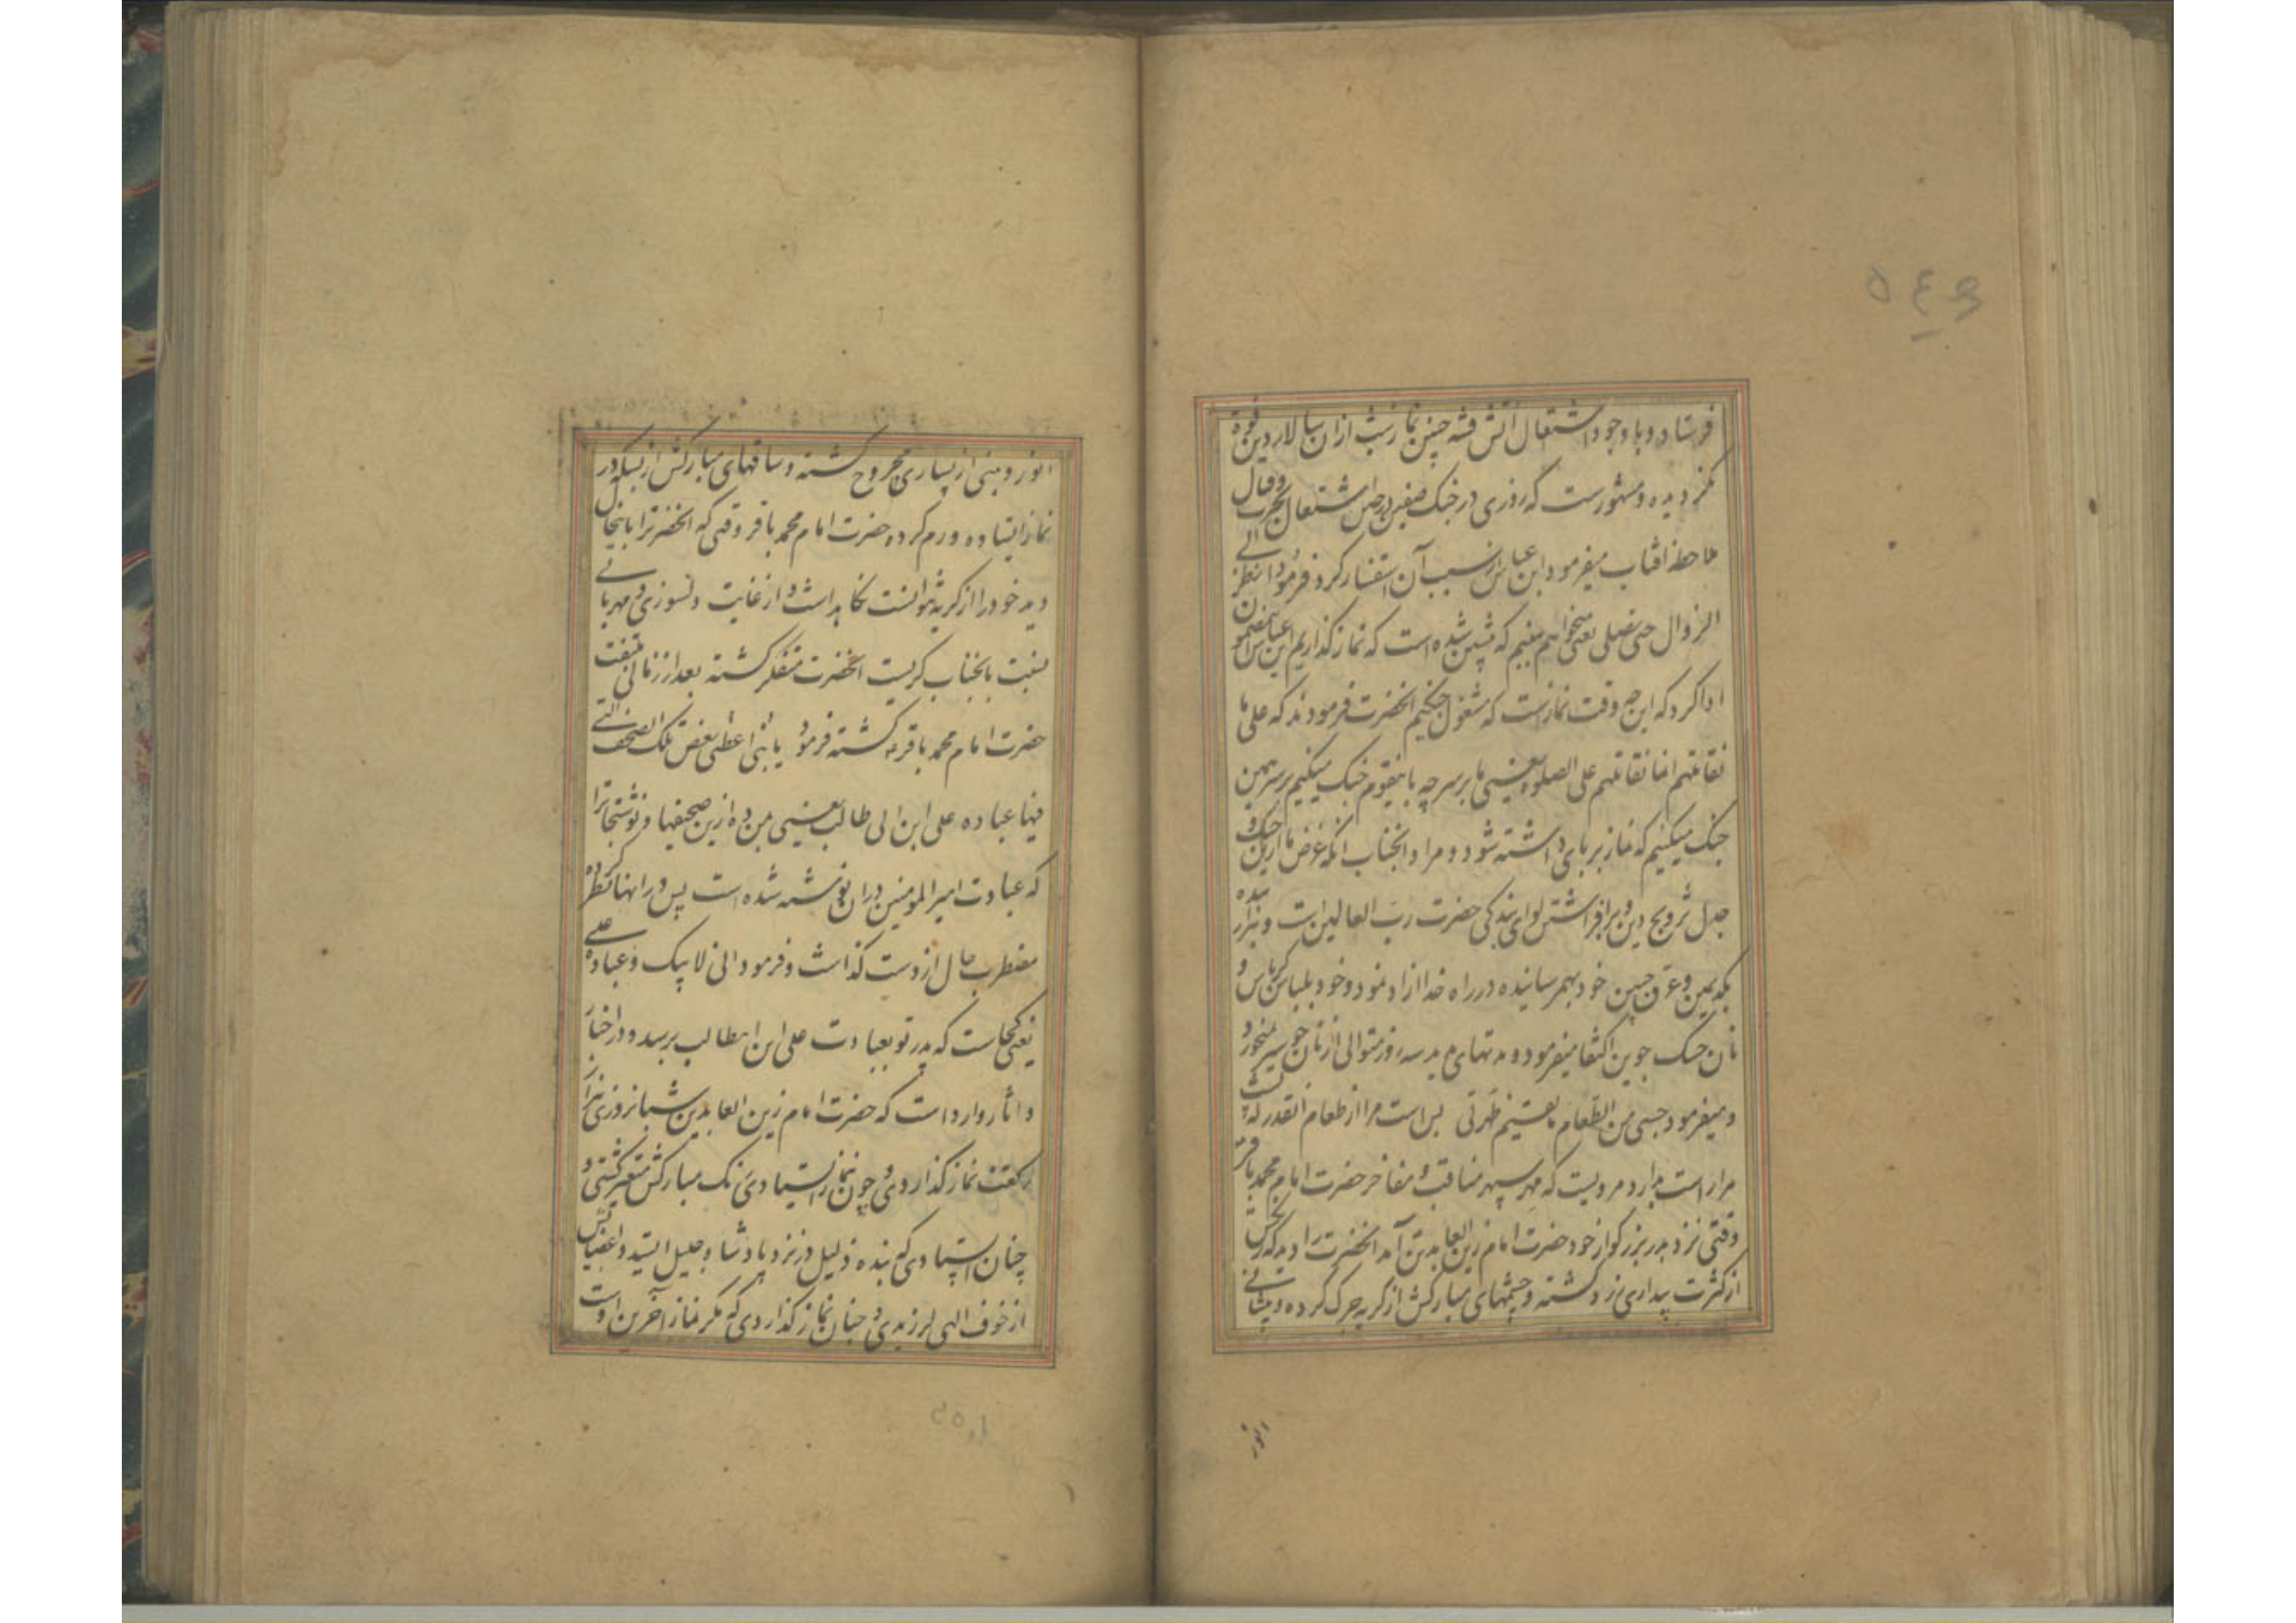 فرستاد و با وجود اشتعال آتش فتنه چنین نماز شب ازان سالار دین فوت
نکردیده و مشهورست که روزی در جنک صفین در حین اشتعال حرب و قتال
ملاحظه افتاب میفرمود ابن عباس از سبب آن استفسار کرد فرمود انظر الی
الزوال حتی نصلی یعنی میخواهم ببینم که پیشین شده است که نماز گذاریم ابن عباس بمضمون
ادا کرد که این چه وقت نمازست که مشغول جنکیم انحضرت فرمودند که علی ما
نقاتلهم انما نقاتلهم علی الصلوه یعنی ما بر سر چه با اینقوم جنک میکنیم بر سر همین
جنک میکنیم که نماز بر پای داشته شود و مراد انجناب انکه غرض ما ازین جنک و
جدل ترویج دین و برافراشتن لوای بندکی حضرت رب العالمین است و هزار بنده
بکد یمین و عرق جبین خود بهمرسانیده در راه خدا ازاد نمود و خود بلباس کرباس و
نان خشک جوین اکتفا میفرمود و مدتهای مدید سه روز متوالی از نان جو سیر نخورد
و میفرمود حسبی من الطعام ما یقیم ظهری بس است مرا از طعام انقدر که پشت
مرا راست بدارد مرویست که مهر سپهر مناقب و مفاخر حضرت امام محمد باقر
وقتی نزد پدر بزرکوار خود حضرت امام زین العابدین آمد انحضرت را دید که رنکش
از کثرت بیداری زرد کشته و چشمهای مبارکش از کریه جرک کرده و پیشانی
انور
انور و بینی از بسیاری مجروح کشته و ساقهای مبارکش از بسکه در
نماز ایستاده ورم کرده حضرت امام محمد باقر وقتی که انحضرترا باینحال
دید خود را از کریه نتوانست نکاه داشت و از غایت دلسوزی و مهربانی
نسبت بانجناب کریست انحضرت متفکر کشته بعد از زمانی ملتفت
حضرت امام محمد باقر کشته فرمود یا بنی اعطنی بعض تلک الصحف التی
فیها عباده علی ابن ابی طالب یعنی بمن ده ازین صحیفها و نوشتجاترا
که عبادت امیر المومنین دران نوشته شده است پس در انها نظر کرده
مضطرب حال از دست کذاشت و فرمود انی لابیک و عباده علی
یعنی کجاست که پدر تو بعبادت علی ابن ابیطالب برسد و در اخبار
و اثار وارد است که حضرت امام زین العابدین شبانروزی هزار
رکعت نماز کذاردی و چون بنماز ایستادی رنک مبارکش متغیر کشتی و
چنان ایستادی که بنده ذلیل در نزد پادشاه جلیل ایستد و اعضایش
از خوف الهی لرزیدی و چنان نماز کذاردی که مکر نماز آخرین اوست